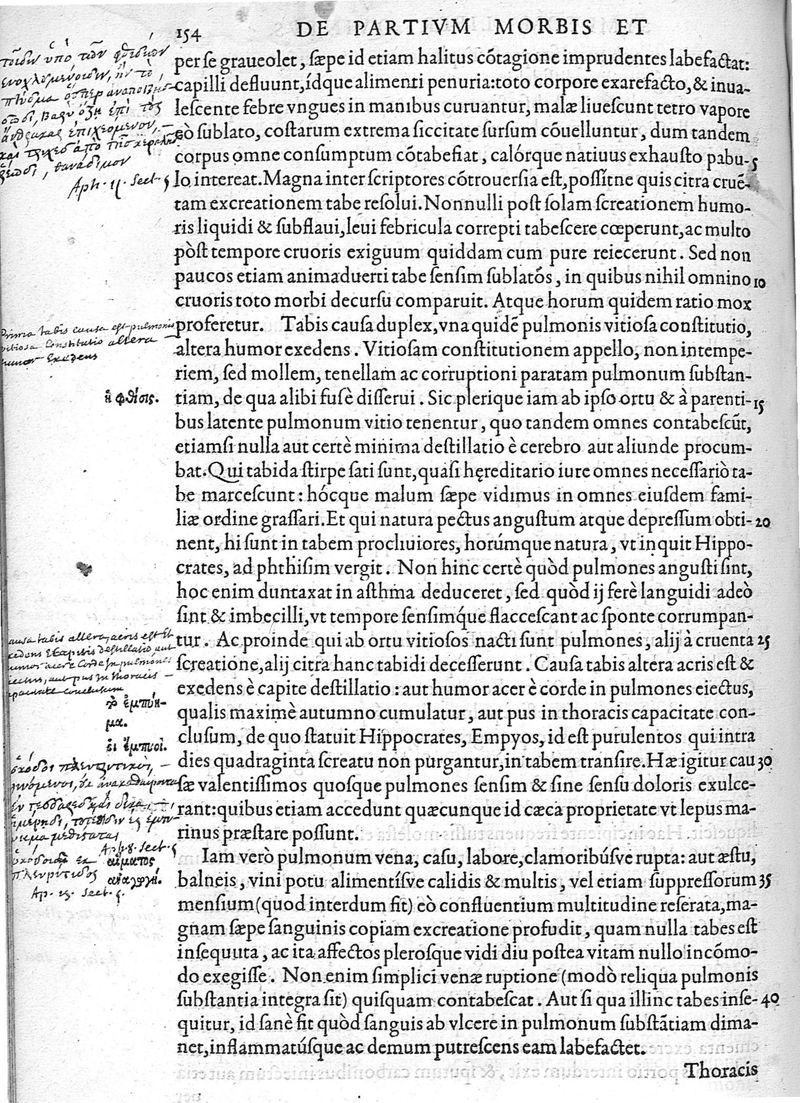 154
DE PARTIVM MORBIS ET
per se graueolet, sæpe id etiam halitus cōtagione imprudentes labefactat:
capilli defluunt, ídque alimenti penuria: toto corpore exarefacto, & inua-
lescente febre vngues in manibus curuantur, malæ liuescunt tetro vapore
eò sublato, costarum extrema siccitate sursum cōuelluntur, dum tandem
corpus omne consumptum cōtabefiat, calórque natiuus exhausto pabu- 5
lo intereat. Magna inter scriptores cōtrouersia est, possítne quis citra cruē-
tam excreationem tabe resolui. Nonnulli post solam screationem humo-
ris liquidi & subflaui, leui febricula correpti tabescere cœperunt, ac multo
pòst tempore cruoris exiguum quiddam cum pure reiecerunt. Sed non
paucos etiam animaduerti tabe sensim sublatós, in quibus nihil omnino 10
cruoris toto morbi decursu comparuit. Atque horum quidem ratio mox
proferetur. Tabis causa duplex, vna quidē pulmonis vitiosa constitutio,
altera humor exedens. Vitiosam constitutionem appello, non intempe-
riem, sed mollem, tenellam ac corruptioni paratam pulmonum substan-
tiam, de qua alibi fusè disserui. Sic plerique iam ab ipso ortu & à parenti- 15
bus latente pulmonum vitio tenentur, quo tandem omnes contabescūt,
etiamsi nulla aut certè minima destillatio è cerebro aut aliunde procum-
bat. Qui tabida stirpe sati sunt, quasi hęreditario iure omnes necessariò ta-
be marcescunt: hócque malum sæpe vidimus in omnes eiusdem fami-
liæ ordine grassari. Et qui natura pectus angustum atque depressum obti- 20
nent, hi sunt in tabem procliuiores, horúmque natura, vt inquit Hippo-
crates, ad phthisim vergit. Non hinc certè quòd pulmones angusti sint,
hoc enim duntaxat in asthma deduceret, sed quòd ij ferè languidi adeò
sint & imbecilli, vt tempore sensimq́ue flaccescant ac sponte corrumpan-
tur. Ac proinde qui ab ortu vitiosos nacti sunt pulmones, alij à cruenta 25
screatione, alij citra hanc tabidi decesserunt. Causa tabis altera acris est &
exedens è capite destillatio: aut humor acer è corde in pulmones eiectus,
qualis maximè autumno cumulatur, aut pus in thoracis capacitate con-
clusum, de quo statuit Hippocrates, Empyos, id est purulentos qui intra
dies quadraginta screatu non purgantur, in tabem transire. Hæ igitur cau 30
sæ valentissimos quosque pulmones sensim & sine sensu doloris exulce-
rant: quibus etiam accedunt quæcunque id cæca proprietate vt lepus ma-
rinus præstare possunt.
Iam verò pulmonum vena, casu, labore, clamoribúsve rupta: aut æstu,
balneis, vini potu alimentísve calidis & multis, vel etiam suppressorum 35
mensium (quod interdum fit) eò confluentium multitudine reserata, ma-
gnam sæpe sanguinis copiam excreatione profudit, quam nulla tabes est
insequuta, ac ita affectos plerosque vidi diu postea vitam nullo incōmo-
do exegisse. Non enim simplici venæ ruptione (modò reliqua pulmonis
substantia integra sit) quisquam contabescat. Aut si qua illinc tabes inse- 40
quitur, id sanè fit quòd sanguis ab vlcere in pulmonum substātiam dima-
net, inflammatúsque ac demum putrescens eam labefactet.
Thoracis
Aph. 11. Sect. 5
Prima tabis causa est pulmonis
vitiosa constitutio altera
humor exedens
ἡ φθίσις.
τὸ ἐμπύη-
μα.
οἱ ἔμπυοι.
Aph. 8. Sect. 5
αἵματος
ἀναγωγή.
Ap. 15. Sect. 5.